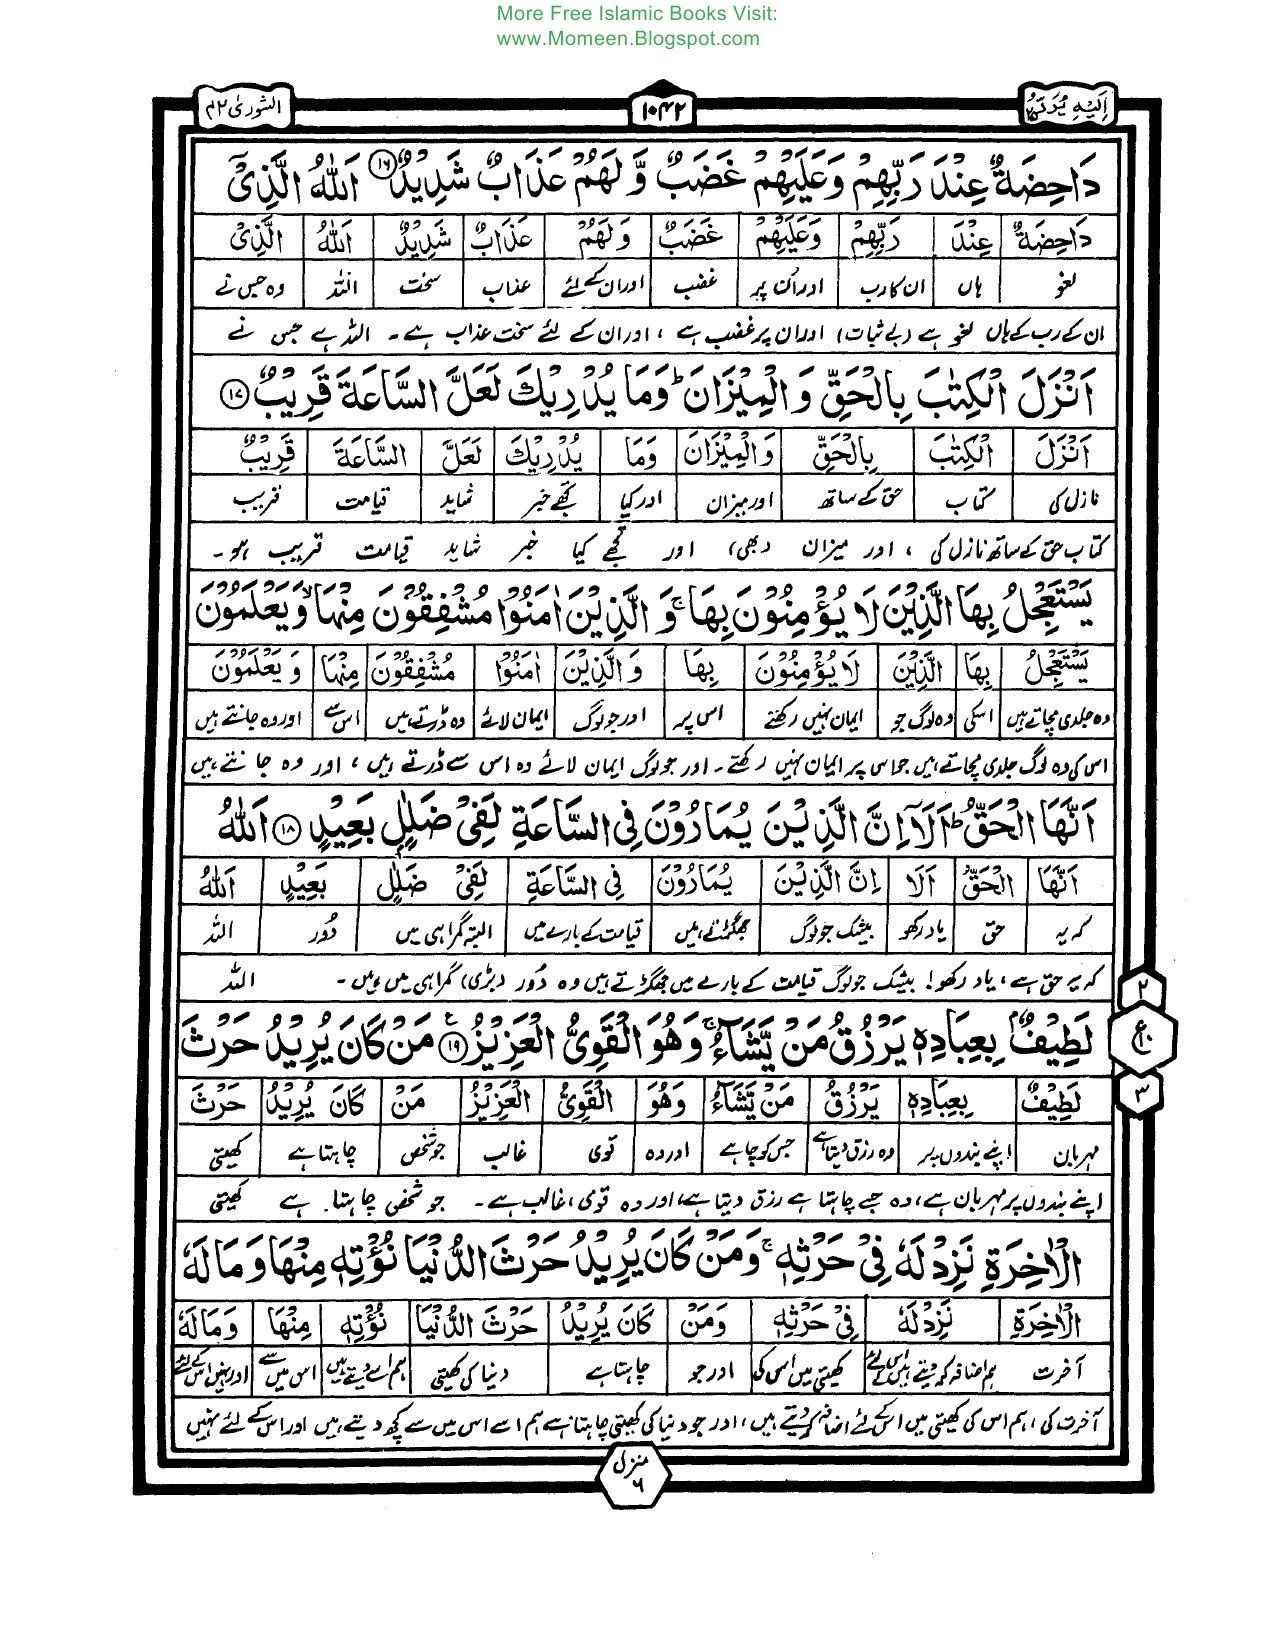 More Free Islamic Books Visit:
www.Momeen.Blogspot.com
اِلَيْهِ يُرَدُّ ۲۵ ۱۰۴۲ الشورىٰ ۴۲
دَاحِضَةٌ عِنْدَ رَبِّهِمْ وَعَلَيْهِمْ غَضَبٌ وَّلَهُمْ عَذَابٌ شَدِيْدٌ ۱۶ اَللّٰهُ الَّذِيْٓ
دَاحِضَةٌ عِنْدَ رَبِّهِمْ وَعَلَيْهِمْ غَضَبٌ وَلَهُمْ عَذَابٌ شَدِيْدٌ اَللّٰهُ الَّذِيْٓ
لغو ہاں ان کا رب اور اُن پر غضب اور ان کے لئے عذاب سخت اللہ وہ جس نے
ان کے رب کے ہاں لغو ہے (بے ثبات) اور ان پر غضب ہے ، اور ان کے لئے سخت عذاب ہے۔ اللہ ہے جس نے
اَنْزَلَ الْكِتٰبَ بِالْحَقِّ وَالْمِيْزَانَ ؕ وَمَا يُدْرِيْكَ لَعَلَّ السَّاعَةَ قَرِيْبٌ ۱۷
اَنْزَلَ الْكِتٰبَ بِالْحَقِّ وَالْمِيْزَانَ وَمَا يُدْرِيْكَ لَعَلَّ السَّاعَةَ قَرِيْبٌ
نازل کی کتاب حق کے ساتھ اور میزان اور کیا تجھے خبر شاید قیامت قریب
کتاب حق کے ساتھ نازل کی ، اور میزان (بھی) اور تجھے کیا خبر شاید قیامت قریب ہو۔
يَسْتَعْجِلُ بِهَا الَّذِيْنَ لَا يُؤْمِنُوْنَ بِهَا ۚ وَالَّذِيْنَ اٰمَنُوْا مُشْفِقُوْنَ مِنْهَا ۙ وَيَعْلَمُوْنَ
يَسْتَعْجِلُ بِهَا الَّذِيْنَ لَا يُؤْمِنُوْنَ بِهَا وَالَّذِيْنَ اٰمَنُوْا مُشْفِقُوْنَ مِنْهَا وَيَعْلَمُوْنَ
وہ جلدی مچاتے ہیں اسکی وہ لوگ جو ایمان نہیں رکھتے اس پر اور جو لوگ ایمان لائے وہ ڈرتے ہیں اس سے اور وہ جانتے ہیں
اس کی وہ لوگ جلدی مچاتے ہیں جو اس پر ایمان نہیں رکھتے۔ اور جو لوگ ایمان لائے وہ اس سے ڈرتے ہیں ، اور وہ جانتے ہیں
اَنَّهَا الْحَقُّ ؕ اَلَآ اِنَّ الَّذِيْنَ يُمَارُوْنَ فِي السَّاعَةِ لَفِيْ ضَلٰلٍۢ بَعِيْدٍ ۱۸ اَللّٰهُ
اَنَّهَا الْحَقُّ اَلَا اِنَّ الَّذِيْنَ يُمَارُوْنَ فِي السَّاعَةِ لَفِيْ ضَلٰلٍ بَعِيْدٍ اَللّٰهُ
کہ یہ حق یاد رکھو بیشک جو لوگ جھگڑتے ہیں قیامت کے بارے میں البتہ گمراہی میں دُور اللہ
کہ یہ حق ہے ، یاد رکھو! بیشک جو لوگ قیامت کے بارے میں جھگڑتے ہیں وہ دُور (بڑی) گمراہی میں ہیں۔ اللہ
۲
ع ۱۰
۳
لَطِيْفٌۢ بِعِبَادِهٖ يَرْزُقُ مَنْ يَّشَآءُ ۚ وَهُوَ الْقَوِيُّ الْعَزِيْزُ ۱۹ مَنْ كَانَ يُرِيْدُ حَرْثَ
لَطِيْفٌ بِعِبَادِهٖ يَرْزُقُ مَنْ يَّشَآءُ وَهُوَ الْقَوِيُّ الْعَزِيْزُ مَنْ كَانَ يُرِيْدُ حَرْثَ
مہربان اپنے بندوں پر وہ رزق دیتا ہے جس کو چاہے اور وہ قوی غالب جو شخص چاہتا ہے کھیتی
اپنے بندوں پر مہربان ہے ، وہ جسے چاہتا ہے رزق دیتا ہے ، اور وہ قوی ، غالب ہے۔ جو شخص چاہتا ہے کھیتی
الْاٰخِرَةِ نَزِدْ لَهٗ فِيْ حَرْثِهٖ ۚ وَمَنْ كَانَ يُرِيْدُ حَرْثَ الدُّنْيَا نُؤْتِهٖ مِنْهَا وَمَا لَهٗ
الْاٰخِرَةِ نَزِدْ لَهٗ فِيْ حَرْثِهٖ وَمَنْ كَانَ يُرِيْدُ حَرْثَ الدُّنْيَا نُؤْتِهٖ مِنْهَا وَمَا لَهٗ
آخرت ہم اضافہ کر دیتے ہیں اس کے لئے کھیتی میں اس کی اور جو چاہتا ہے دنیا کی کھیتی ہم اسے دیتے ہیں اس میں سے اور نہیں اس کے لئے
آخرت کی ، ہم اس کی کھیتی میں اس کے لئے اضافہ کر دیتے ہیں ، اور جو دنیا کی کھیتی چاہتا ہے ہم اسے اس میں سے کچھ دیتے ہیں اور اس کے لئے نہیں
منزل ۶